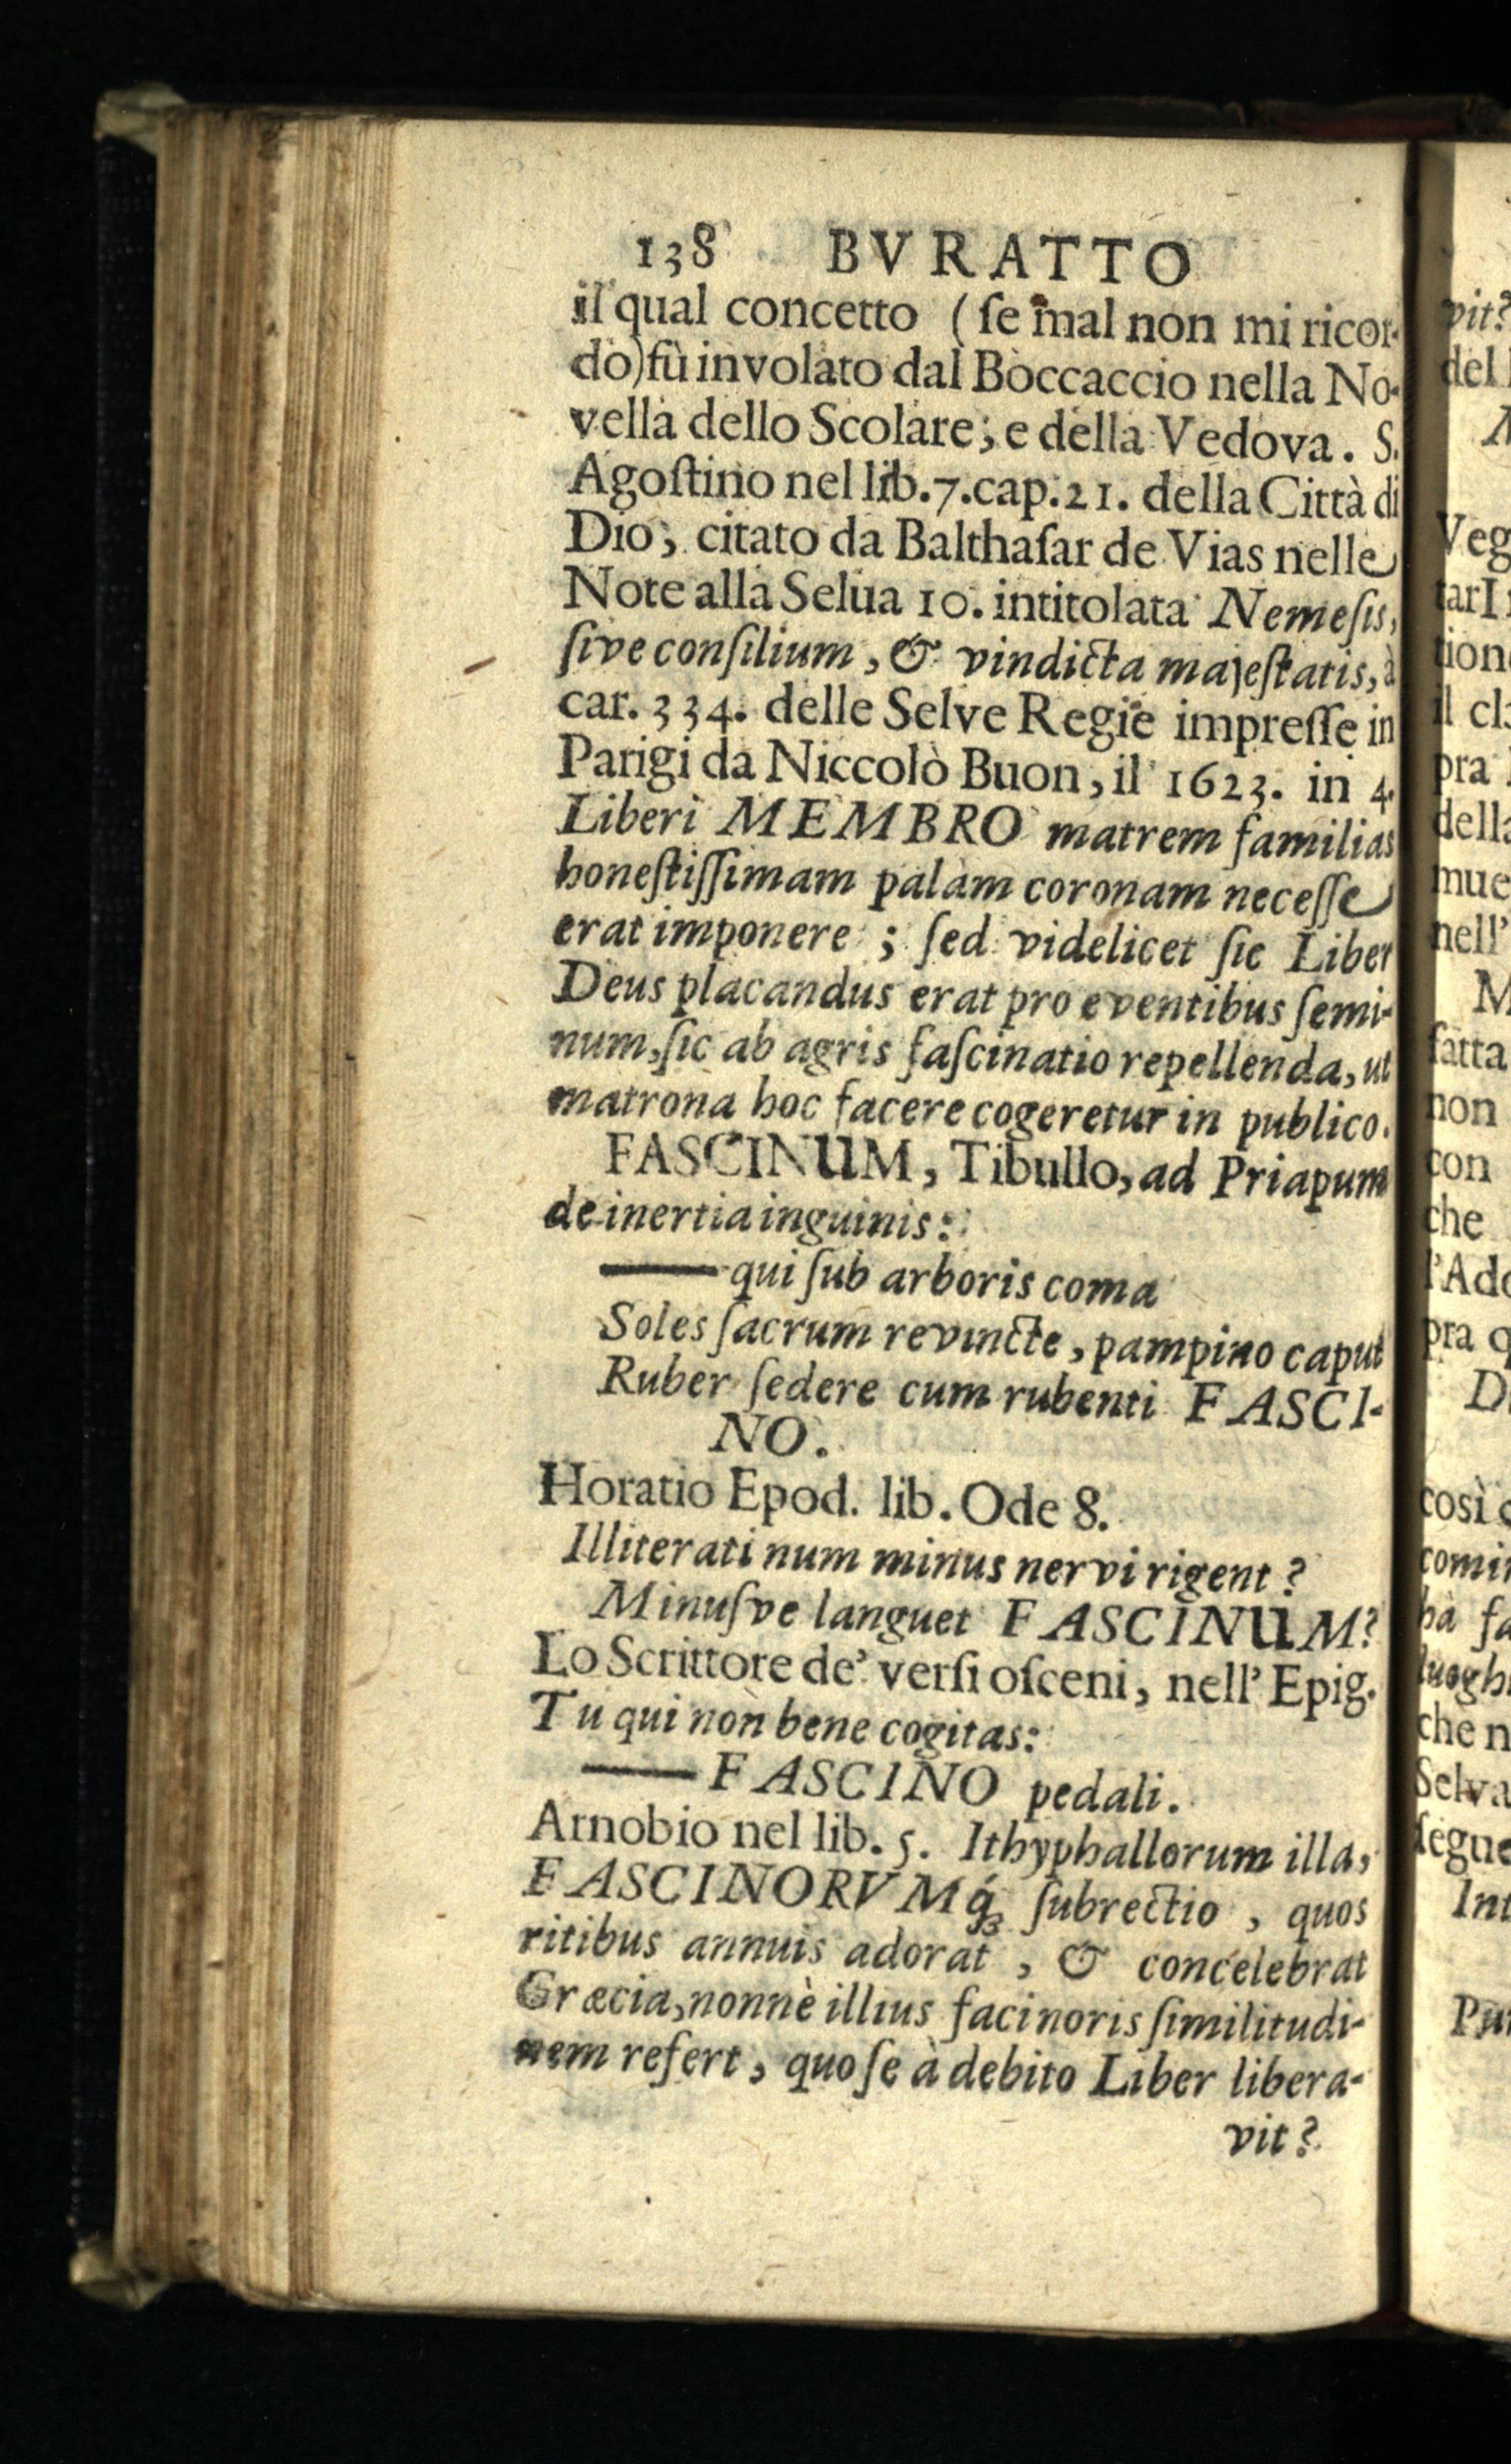 138 BVRATTO
il qual concetto (ſe mal non mi ricor-
do) fù involato dal Boccaccio nella No-
vella dello Scolare, e della Vedova. S.
Agoſtino nel lib. 7. cap. 21. della Città di
Dio, citato da Balthaſar de Vias nelle
Note alla Selua 10. intitolata Nemeſis,
ſive conſilium, & vindicta majeſtatis, à
car. 334. delle Selve Regie impreſſe in
Parigi da Niccolò Buon, il 1623. in 4.
Liberi MEMBRO matrem familias
honeſtiſſimam palàm coronam neceſſe
erat imponere; ſed videlicet ſic Liber
Deus placandus erat pro eventibus ſemi-
num, ſic ab agris faſcinatio repellenda, ut
matrona hoc facere cogeretur in publico.
FASCINUM, Tibullo, ad Priapum
de inertia inguinis:
—— qui ſub arboris coma
Soles ſacrum revincte, pampino caput
Ruber ſedere cum rubenti FASCI-
NO.
Horatio Epod. lib. Ode 8.
Illiterati num minus nervi rigent?
Minuſve languet FASCINUM?
Lo Scrittore de' verſi oſceni, nell' Epig.
Tu qui non bene cogitas:
—— FASCINO pedali.
Arnobio nel lib. 5. Ithyphallorum illa,
FASCINORVMq́; ſubrectio, quos
ritibus annuis adorat, & concelebrat
Græcia, nonnè illius facinoris ſimilitudi-
nem refert, quo ſe à debito Liber libera-
vit?